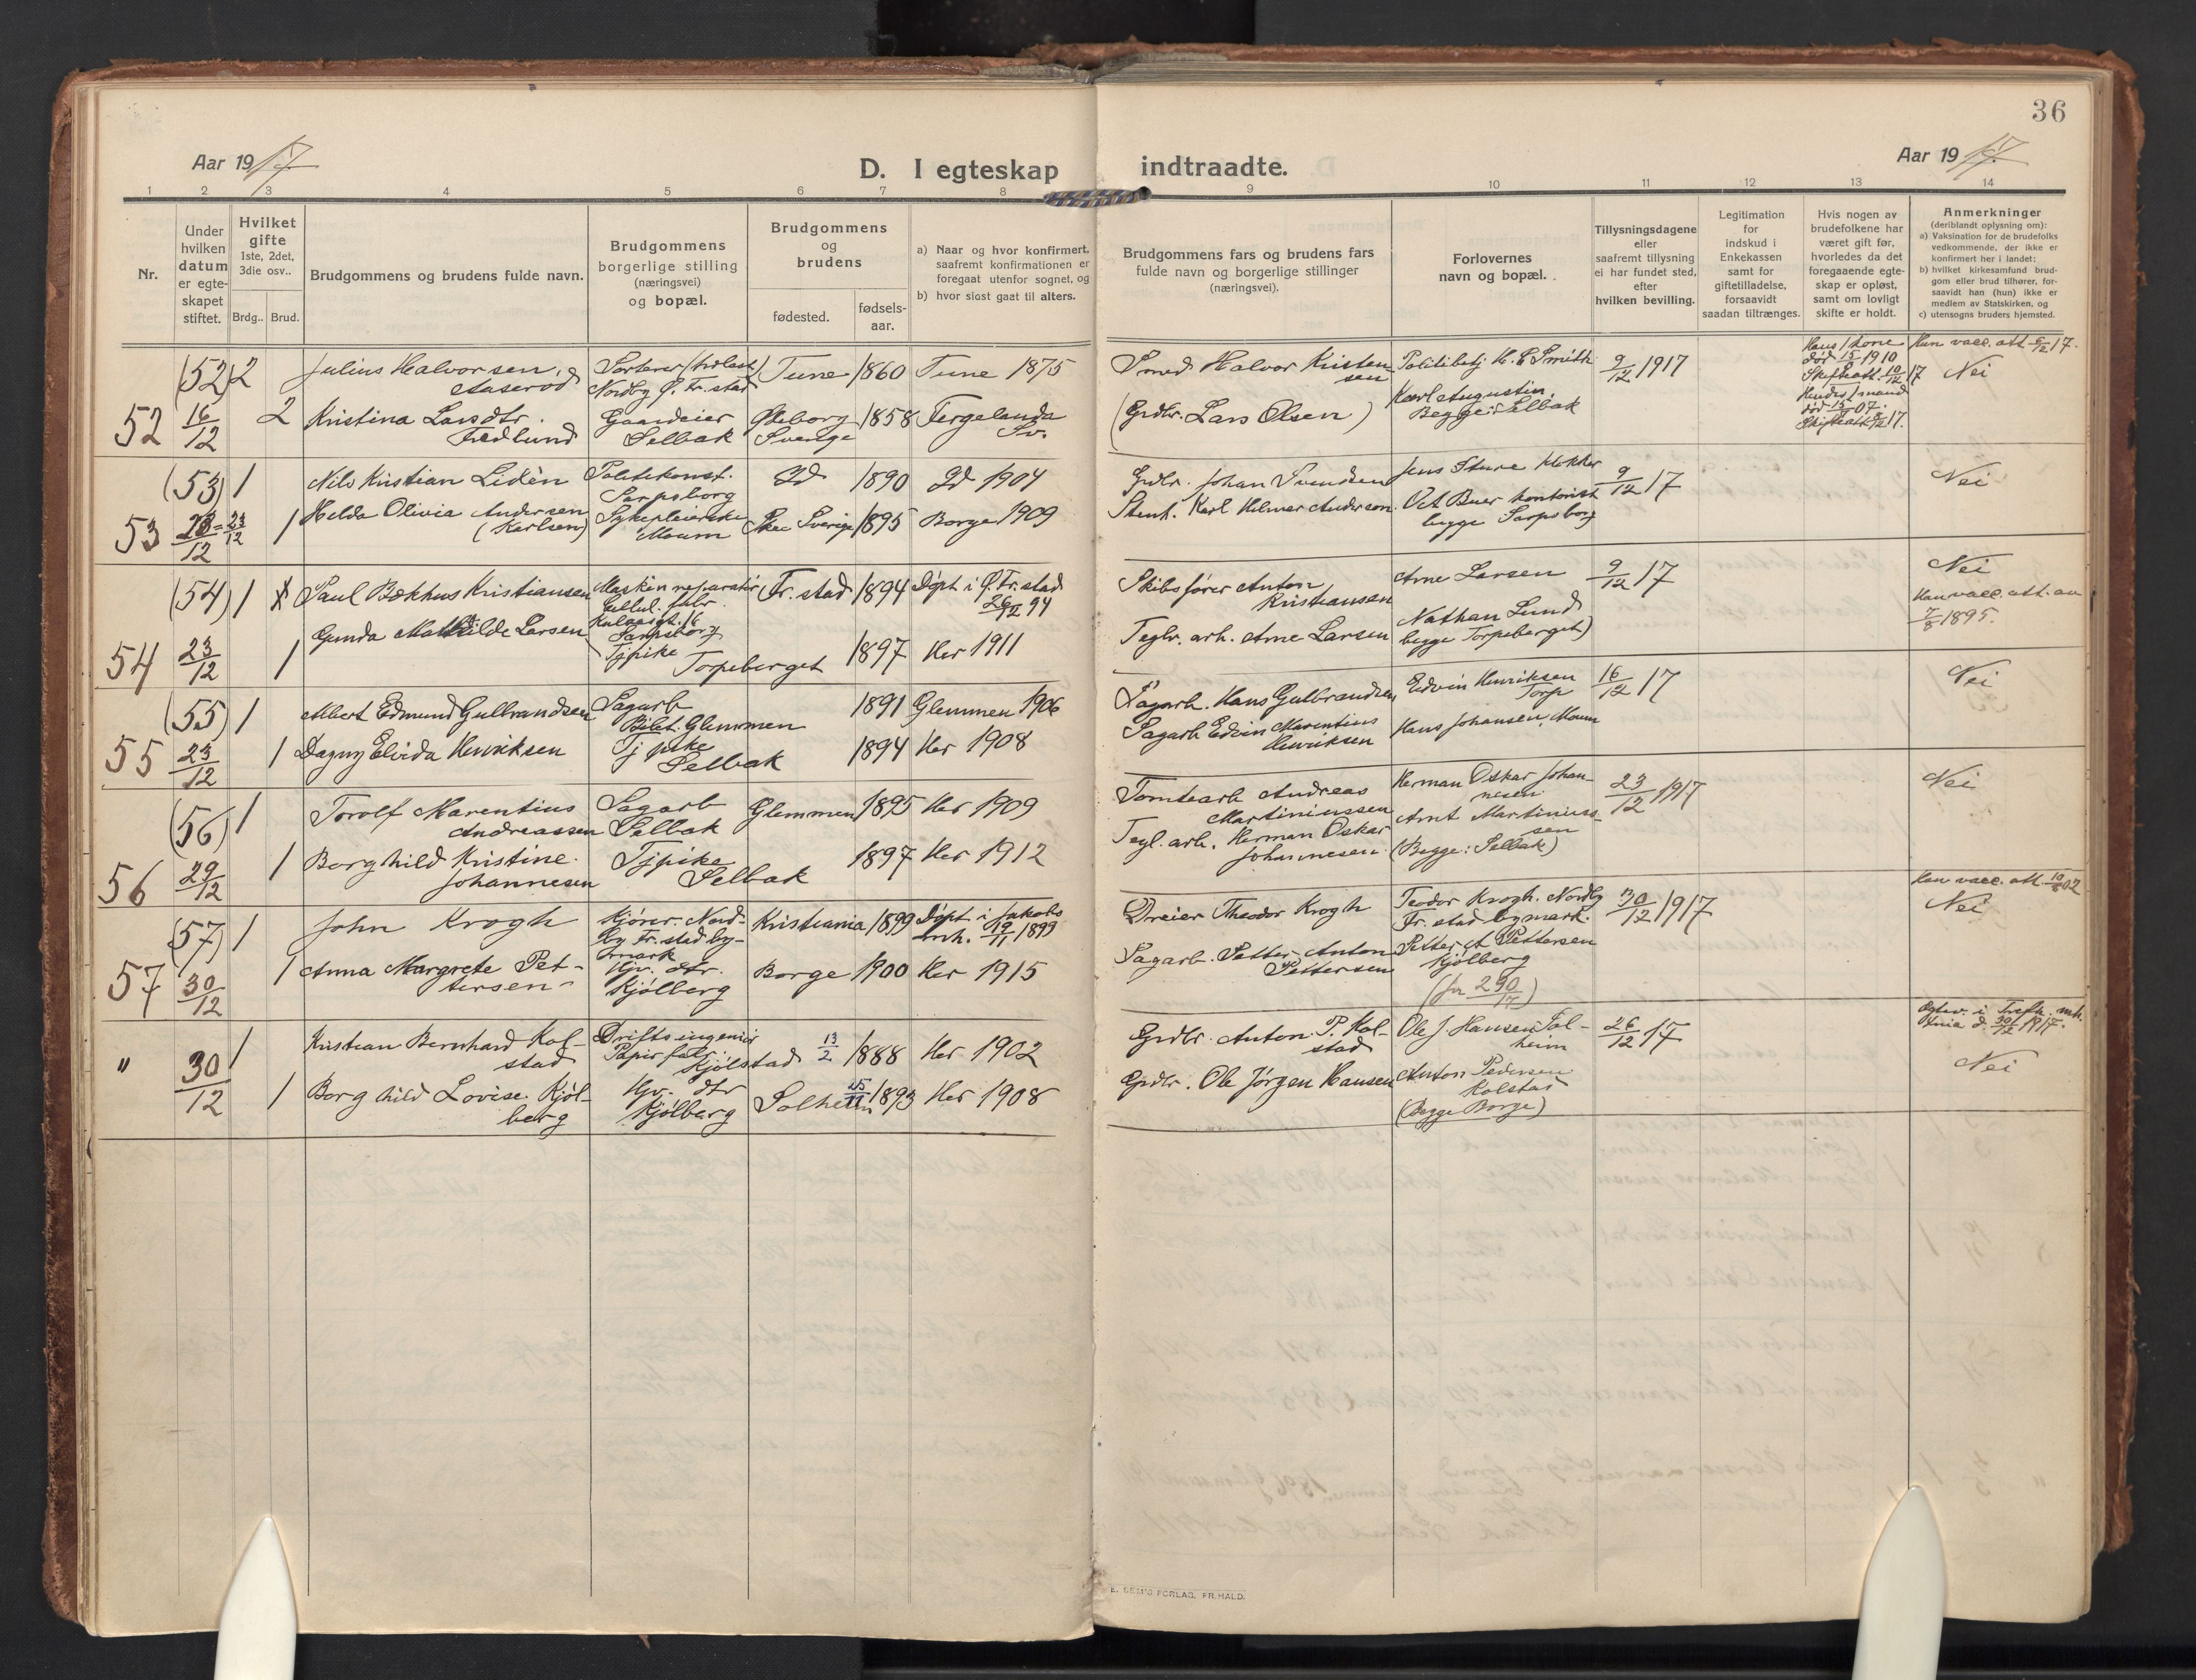 36
Aar 1917.
D. I egteskap indtraadte.
Aar 1917.
1 2 3 4 5 6 7 8 9 10 11 12 13 14
Nr.
Under
hvilken
datum
er egte-
skapet
stiftet.
Hvilket
gifte
1ste, 2det,
3die osv..
Brdg.. Brud.
Brudgommens og brudens fulde navn.
Brudgommens
borgerlige stilling
(næringsvei)
og bopæl.
Brudgommens
og
brudens
fødested.
fødsels-
aar.
a) Naar og hvor konfirmert,
saafremt konfirmationen er
foregaat utenfor sognet, og
b) hvor sidst gaat til alters.
Brudgommens fars og brudens fars
fulde navn og borgerlige stillinger
(næringsvei).
Forlovernes
navn og bopæl.
Tillysningsdagene
eller
saafremt tillysning
ei har fundet sted,
efter
hvilken bevilling.
Legitimation
for
indskud i
Enkekassen
samt for
giftetilladelse,
forsaavidt
saadan tiltrænges.
Hvis nogen av
brudefolkene har
været gift før,
hvorledes da det
foregaaende egte-
skap er opløst,
samt om lovligt
skifte er holdt.
Anmerkninger
(deriblandt oplysning om):
a) Vaksination for de brudefolks
vedkommende, der ikke er
konfirmert her i landet;
b) hvilket kirkesamfund brud-
gom eller brud tilhører, for-
saavidt han (hun) ikke er
medlem av Statskirken, og
c) utensogns bruders hjemsted.
(52) 2
Julius Halvorsen,
Nordby Ø. Fr. stad
Tune 1860 Tune 1875
Smed Halvor Kristen
sen
Politibetj. H. E. Smith
9/12 1917
Hans 1 kone
død 15/1 1910
Skifteatt. 10/12 17
Hun vacc. att. 17.
Nei
52 16/12 2
Kristina Larsdtr.
Hedlund
Gaardeier
Selbak
Gøteborg
Sverige
1858 Fergelanda
Sv.
(Grdbr. Lars Olsen)
Karl Augustin
Begge: Selbak
Hendes 1 mand
død 15/7 07.
Skifteatt. 17.
(53) 1
Nils Kristian Lidèn
Politikonst.
Sarpsborg
Id 1890 Id 1904
Grdbr. Johan Svendsen
Jens Sture klokker
9/12 17
Nei
53 23/12 1
Helda Olivia Andersen
(Karlsen)
Sykepleierske
Moum
Sverige 1895 Borge 1909
Stenh. Karl Hilmer Anderson.
Oct Buer kontorist
begge Sarpsborg
(54) 1
Paul Bækhus Kristiansen
Maskin reparatør
Cellul. fabr.
Sarpsborg
Fr. stad 1894 Døpt i Ø. Fr. stad
26/12 94
Skibsfører Anton
Kristiansen
Arne Larsen
9/12 17
Nei
Han vacc. att. av
7/8 1895.
54 23/12 1
Gunda Mathilde Larsen
Tjpike
Torpeberget
1897 Her 1911
Teglv. arb. Arne Larsen
Nathan Lund
begge Torpeberget)
(55) 1
Albert Edmund Gulbrandsen
Sagarb
Glemmen
1891 Glemmen 1906
Sagarb. Hans Gulbrandsen
Edvin Henriksen
Torp
16/12 17
Nei
55 23/12 1
Dagny Elvida Henriksen
Tjpike
Selbak
1894 Her 1908
Sagarb Edvin Marentius
Henriksen
Hans Johansen, Moum
(56) 1
Torolf Marentius
Andreassen
Sagarb
Selbak
Glemmen 1895 Her 1909
Tomtearb Andreas
Martiniussen
Herman Oskar Johan-
nesen
23/12 1917
Nei
56 29/12 1
Borghild Kristine
Johannesen
Tjpike
Selbak
1897 Her 1912
Tegl. arb. Herman Oskar
Johannesen
Arnt Martinius-
sen
(Begge: Selbak)
(57) 1
John Krogh
Kjører. Nord-
by Fr. stad by-
mark
Kristiania 1899 Døpt i Jakobs
mh. 19/11 1899
Dreier Theodor Krogh
Teodor Krogh. Nordby
Fr. stad bymark.
30/12 1917
Han vacc. att. 02
Nei
57 30/12 1
Anna Margrete Pet-
tersen
Hjv. dtr.
Kjølberg
Borge 1900 Her 1915
Sagarb. Petter Anton
Pettersen
Petter A Pettersen
Kjølberg
(jn 290/17)
" 30/12 1
Kristian Bernhard Kol-
stad
Driftsingeniør
Papir fab.
Kjølstad
13/2 1888 Her 1902
Grdbr. Anton P. Kol-
stad
Ole J. Hansen Sol-
heim
26/12 17
Nei
1
Borghild Lovise Kjøl-
berg
Hjv. dtr
Kjølberg
Solheim 15/11 1893 Her 1908
Grdbr. Ole Jørgen Hansen
Anton Pedersen
Kolstad
(Begge Borge)
E. SEM'S FORLAG, FR.HALD.